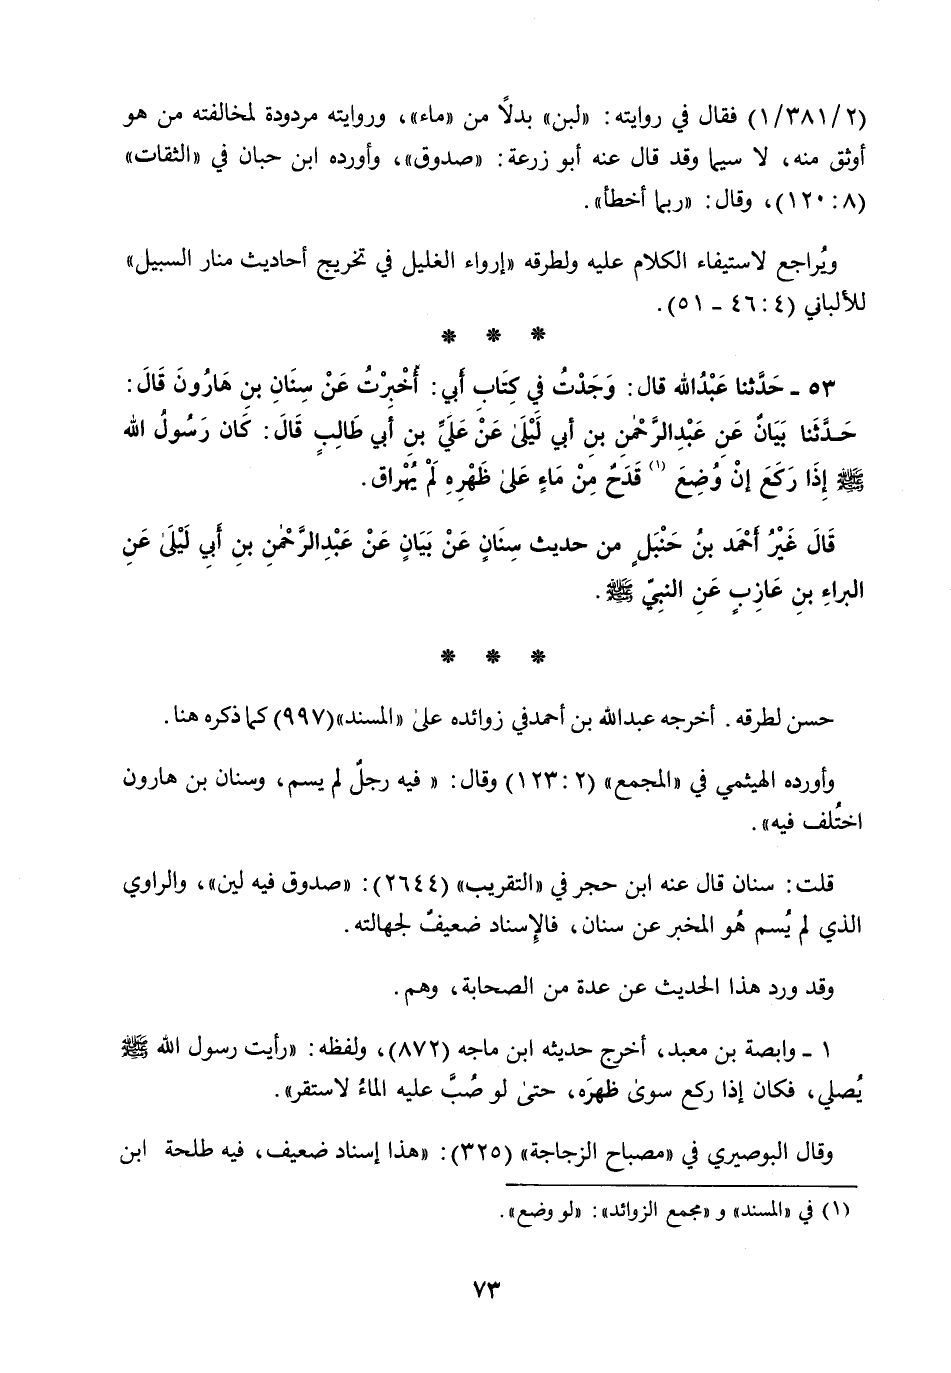 (٢/ ٣٨١/ ١) فقال في روايته: «لبن» بدلًا من «ماء»، وروايته مردودة لمخالفته من هو
أوثق منه، لا سيما وقد قال عنه أبو زرعة: «صدوق»، وأورده ابن حبان في «الثقات»
(٨: ١٢٠)، وقال: «ربما أخطأ».
ويُراجع لاستيفاء الكلام عليه ولطرقه «إرواء الغليل في تخريج أحاديث منار السبيل»
للألباني (٤: ٤٦ ـ ٥١).
* * *
٥٣ ـ حَدَّثنا عَبْدُالله قال: وَجَدْتُ في كِتَابِ أَبي: أُخْبِرْتُ عَنْ سِنَانِ بنِ هَارُونَ قَالَ:
حَـدَّثَنا بَيَانٌ عَن عَبْدِالرَّحْمٰنِ بنِ أبي لَيْلَىٰ عَنْ عَليِّ بنِ أبي طَالِبٍ قَالَ: كَان رَسُولُ الله
ﷺ إِذَا رَكَعَ إنْ وُضِعَ (١) قَدَحٌ مِنْ مَاءٍ عَلىٰ ظَهْرِهِ لَمْ يُهْراق.
قَالَ غَيْرُ أَحْمَد بنُ حَنْبَلٍ من حديث سِنَانٍ عَنْ بَيَانٍ عَنْ عَبْدِالرَّحْمٰنِ بنِ أَبي لَيْلَىٰ عَنِ
البراءِ بنِ عَازِبٍ عَنِ النبيّ ﷺ.
* * *
حسن لطرقه. أخرجه عبدالله بن أحمدفي زوائده علىٰ «المسند»(٩٩٧) كما ذكره هنا.
وأورده الهيثمي في «المجمع» (٢: ١٢٣) وقال: « فيه رجلٌ لم يسم، وسنان بن هارون
اختُلف فيه».
قلت: سنان قال عنه ابن حجر في «التقريب» (٢٦٤٤): «صدوق فيه لين»، والراوي
الذي لم يُسم هُو المخبر عن سنان، فالإسناد ضعيفٌ لجهالته.
وقد ورد هذا الحديث عن عدة من الصحابة، وهم.
١ ـ وابصة بن معبد، أخرج حديثه ابن ماجه (٨٧٢)، ولفظه: «رأيت رسول الله ﷺ
يُصلي، فكان إذا ركع سوىٰ ظهرَه، حتىٰ لو صُبَّ عليه الماءُ لاستقر».
وقال البوصيري في «مصباح الزجاجة» (٣٢٥): «هذا إسناد ضعيف، فيه طلحة ابن
(١) في «المسند» و «مجمع الزوائد»: «لو وضع».
٧٣